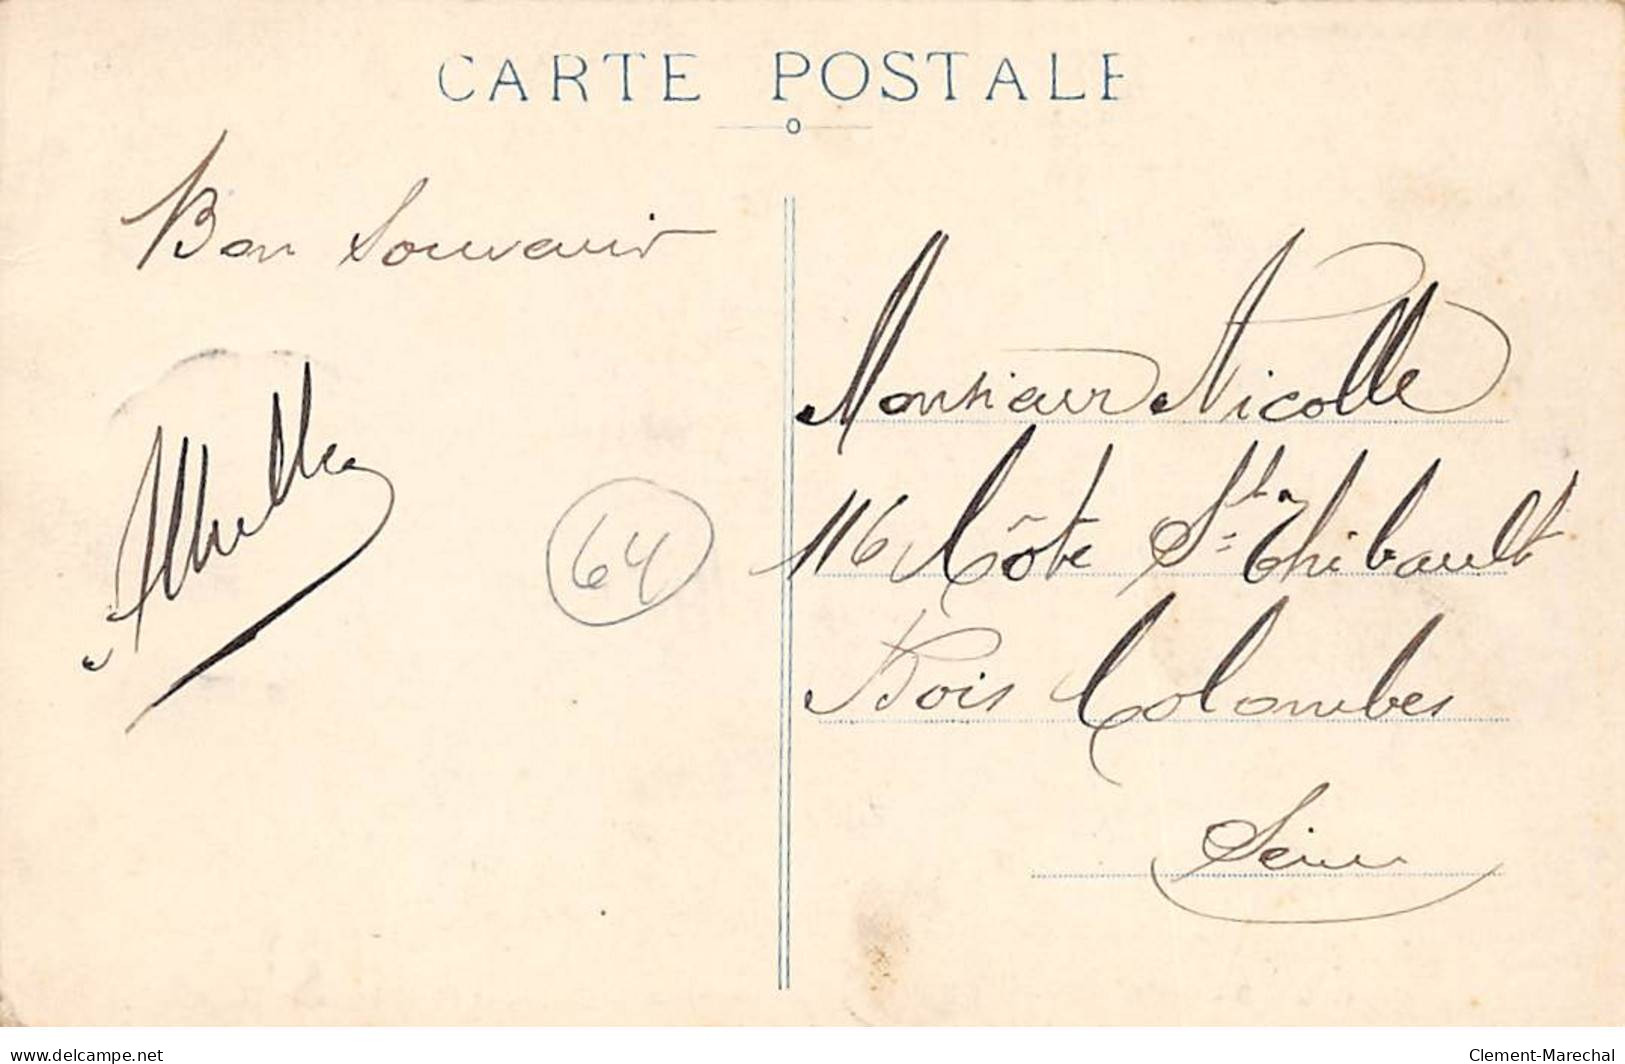 CARTE POSTALE
Bon Souvenir
64
Monsieur Nicolle
116 Côte St= Thibault
Bois Colombes
Seine
www.delcampe.net
Clement-Marechal